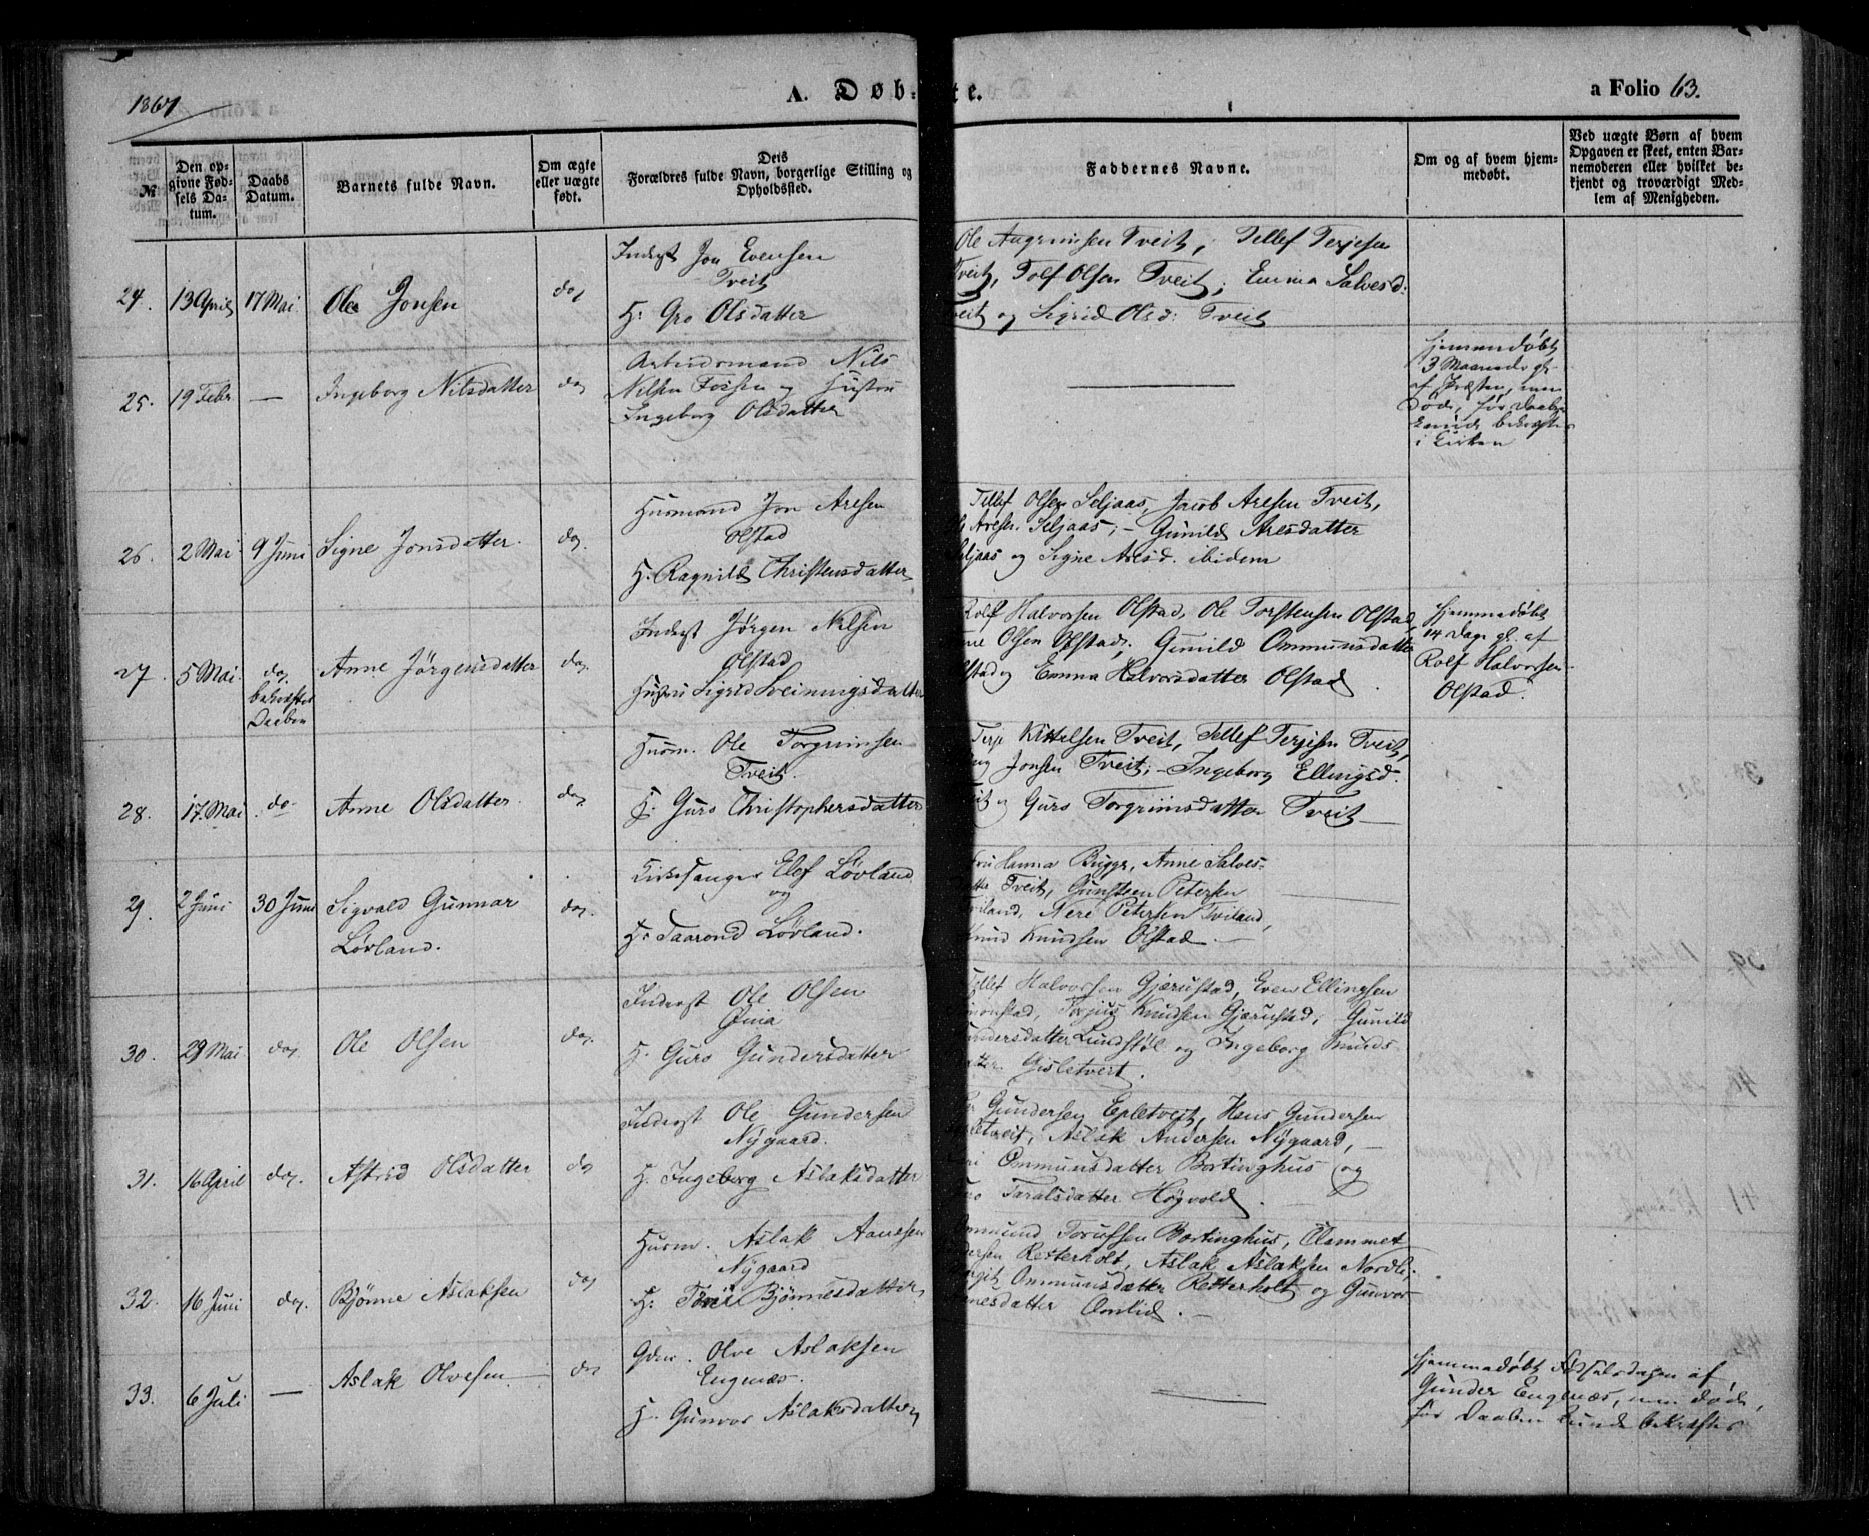 1867
A. Døb-te.
a Folio 63.
№
Den op-
givne Fød-
sels Da-
tum.
Daabs
Datum.
Barnets fulde Navn.
Om ægte
eller uægte
født.
Deis
Forældres fulde Navn, borgerlige Stilling og
Opholdssted.
Faddernes Navne.
Om og af hvem hjem-
medøbt.
Ved uægte Børn af hvem
Opgaven er skeet, enten Bar-
nemoderen eller hvilket be-
kjendt og troværdigt Med-
lem af Menigheden.
24. 13 April 17 Mai Ole Jonsen do
Inderst Jon Evensen
Tveit
H: Gro Olsdatter
Ole Augrimsen Tveit, Tellef Terjesen
Tveit, Tolf Olsen Tveit; Emma Salvesd:
Tveit og Sigrid Olsd: Tveit
25. 19 Febr. — Ingeborg Nilsdatter do
Arbeidsmand Nils
Nilsen Fossen og Hustru
Ingeborg Olsdatter
hjemmedøbt
3 Maaneder gl.
af Præsten, men
døde, før Daaben
kunde bekræftes
i Kirken
26. 2 Mai 9 Juni Signe Jonsdatter. do.
Husmand Jon Aresen
Olstad
H. Ragnild Christensdatter
Tellef Olsen Seljaas, Jacob Aresen Tveit,
Aresen Seljaas; – Gunild Aresdatter
Seljaas og Signe Aresd. ibidem
27. 5 Mai do. Anne Jørgensdatter do.
bekræftet
Daaben
Inderst Jørgen Nilsen
Olstad
Hustru Sigrid Sveinungsdatter
Rolf Halvorsen Olstad, Ole Torstensen Olstad,
Olsen Olstad; Gunild Ommundsdatter
Olstad og Emma Halvorsdatter Olstad.
hjemmedøbt
14 Dage gl. af
Rolf Halvorsen
Olstad.
28. 17. Mai do Anne Olsdatter. do.
Husm. Ole Torgrimsen
Tveit.
H. Guro Christophersdatter
Terje Kittelsen Tveit, Tellef Terjesen Tveit,
Jonsen Tveit; – Ingeborg Ellingsd.
Tveit og Guro Torgrimsdatter Tveit
29. 2 Juni 30 Juni Sigvald Gunnar do.
Løvland.
Kirkesanger Elef Løvland
og
H. Taarond Løvland.
Fru Hanna Bugge, Anne Salves-
datter Tveit, Gunsteen Petersen
Tviland, Nere Petersen Tviland,
Knud Knudsen Olstad. —
30. 29 Mai do. Ole Olsen do.
Inderst Ole Olsen
H. Guro Gundersdatter
Tellef Halvorsen Gjærustad, Even Ellingsen
Simonstad, Torjus Knudsen Gjærustad; Gunild
Gundersdatter Lundstøl og Ingeborg Knuds-
datter Gisletveit.
31. 16 April do. Astrid Olsdatter do
Inderst Ole Gundersen
Nygaard.
H. Ingeborg Aslaksdatter
Gundersen Epletveit, Hans Gundersen
Epletveit, Aslak Andersen Nygaard, —
Ommunsdatter Bortinghus og
Taralsdatter Høgvold.
32. 16 Juni do. Bjønne Aslaksen do
Husm. Aslak Aanesen
Nygaard
H: Tore Bjønnesdatter
Ommund Torufsen Bortinghus, Olammet
Retterholt, Aslak Aslaksen Nordli;
Ommunsdatter Retterholt og Gunvor
datter Omlid. —
33. 6 Juli — Aslak Olvesen do
Gdm. Olve Aslaksen
Engenæs.
H. Gunvor Aslaksdatter
hjemmedøbt Fødselsdagen af
Gunder Engenæs, men døde,
før Daaben kunde bekræftes